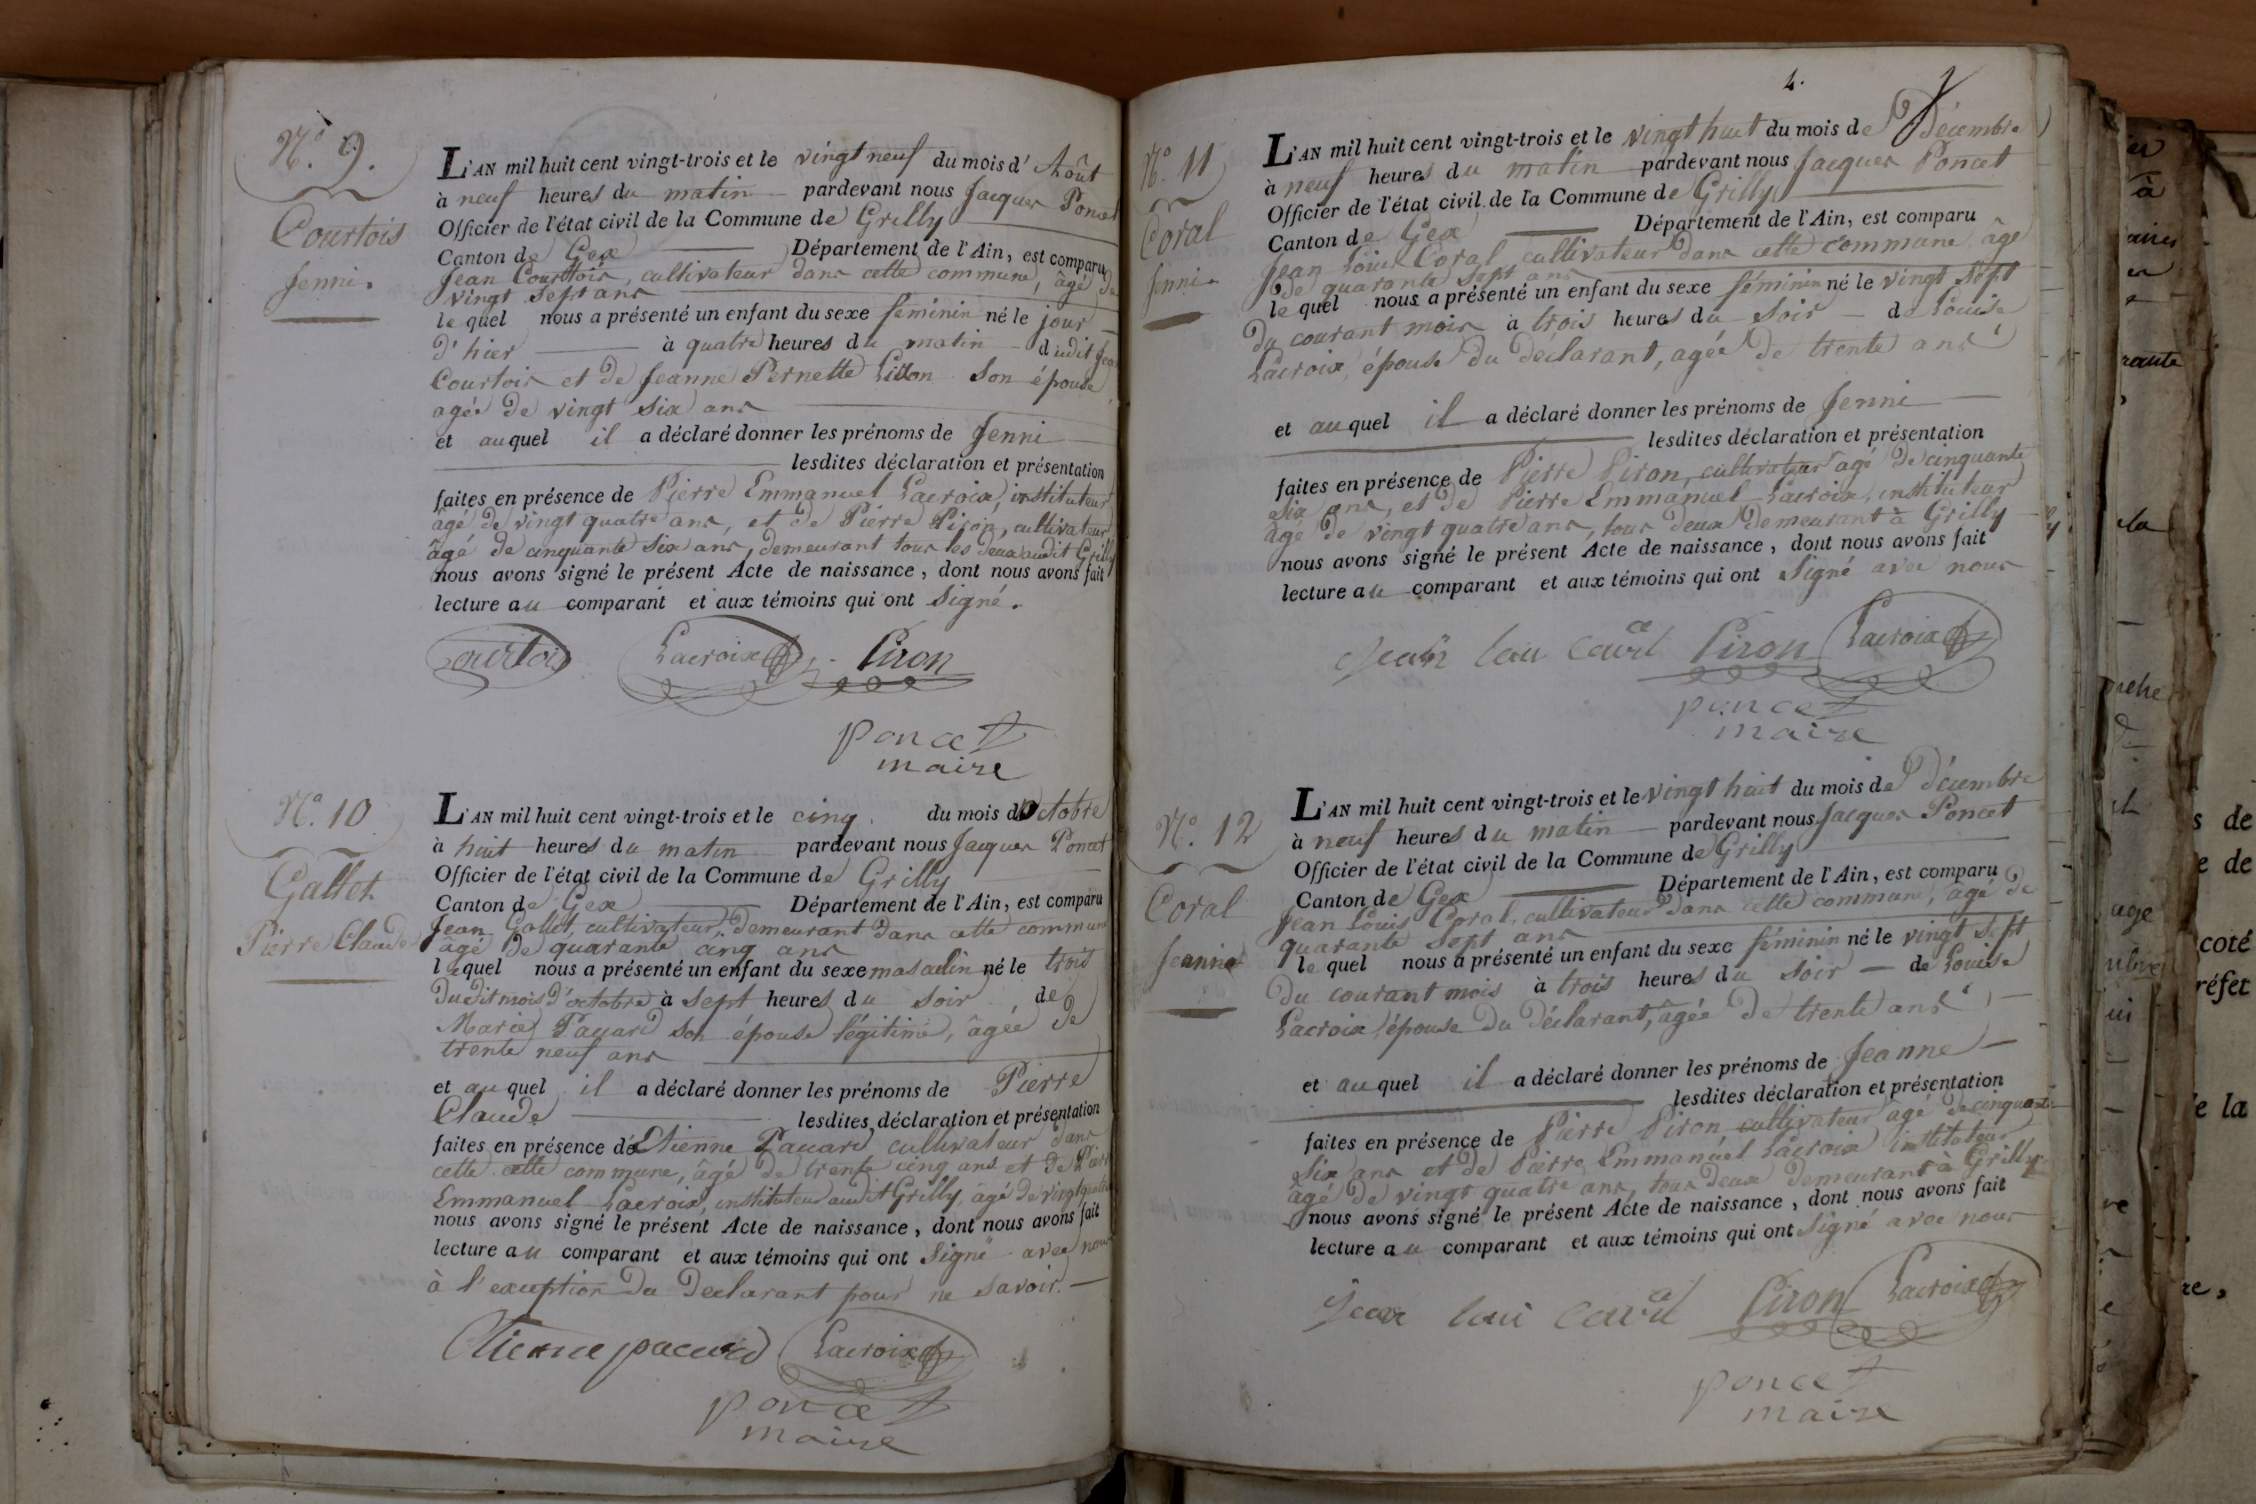 N.o 9.
Courtois
Jenni.
L'AN mil huit cent vingt-trois et le vingt neuf du mois d'Août
à neuf heures du matin pardevant nous Jacques Poncet
Officier de l'état civil de la Commune de Grilly
Canton de Gex Département de l'Ain, est comparu
Jean Courtois, cultivateur dans cette commune, âgé de
vingt sept ans
le quel nous a présenté un enfant du sexe féminin né le jour
d'hier à quatre heures du matin dudit Jean
Courtois et de Jeanne Pernette son épouse
agée de vingt six ans
et auquel il a déclaré donner les prénoms de Jenni
lesdites déclaration et présentation
faites en présence de Pierre Emmanuel Lacroix, instituteur
âgé de vingt quatre ans, et de Pierre Piron, cultivateur
âgé de cinquante six ans, demeurant tous les deux audit Grilly
nous avons signé le présent Acte de naissance, dont nous avons fait
lecture au comparant et aux témoins qui ont signé.
Courtois Lacroix Piron
poncet
maire
N.o 10
Gallet
Pierre Claude
L'AN mil huit cent vingt-trois et le cinq du mois d'Octobre
à huit heures du matin pardevant nous Jacques Poncet
Officier de l'état civil de la Commune de Grilly
Canton de Gex Département de l'Ain, est comparu
Jean Gallet, cultivateur, demeurant dans cette commune
âgé de quarante cinq ans
lequel nous a présenté un enfant du sexe masculin né le trois
dudit mois d'octobre à sept heures du soir de
Marie Pauard son épouse légitime, âgée de
trente neuf ans
et auquel il a déclaré donner les prénoms de Pierre
Claude lesdites déclaration et présentation
faites en présence de Etienne Pauard cultivateur dans
cette cette commune, âgé de trente cinq ans et de Pierre
Emmanuel Lacroix, instituteur audit Grilly, agé de vingt quatre
nous avons signé le présent Acte de naissance, dont nous avons fait
lecture au comparant et aux témoins qui ont signé avec nous
à l'exception du declarant pour ne savoir.
Etienne pacuard Lacroix
poncet
maire
4.
N.o 11
Coral
Jenni.
L'AN mil huit cent vingt-trois et le vingt huit du mois de Décembre
à neuf heures du matin pardevant nous Jacques Poncet
Officier de l'état civil de la Commune de Grilly
Canton de Gex Département de l'Ain, est comparu
Jean Louis Coral, cultivateur dans cette commune âgé
de quarante sept ans
le quel nous a présenté un enfant du sexe féminin né le vingt sept
du courant mois à trois heures du soir de Louise
Lacroix, épouse du déclarant, agée de trente ans
et auquel il a déclaré donner les prénoms de Jenni
lesdites déclaration et présentation
faites en présence de Pierre Piron, cultivateur agé de cinquante
six ans, et de Pierre Emmanuel Lacroix, instituteur
âgé de vingt quatre ans, tous deux demeurant à Grilly
nous avons signé le présent Acte de naissance, dont nous avons fait
lecture au comparant et aux témoins qui ont signé avec nous
Piron Lacroix
poncet
maire
N.o 12
Coral
Jeanne
L'AN mil huit cent vingt-trois et le vingt huit du mois de Décembre
à neuf heures du matin pardevant nous Jacques Poncet
Officier de l'état civil de la Commune de Grilly
Canton de Gex Département de l'Ain, est comparu
Jean Louis Coral, cultivateur dans cette commune, âgé de
quarante sept ans
le quel nous a présenté un enfant du sexe féminin né le vingt sept
du courant mois à trois heures du soir de Louise
Lacroix, épouse du déclarant, âgée de trente ans
et auquel il a déclaré donner les prénoms de Jeanne
lesdites déclaration et présentation
faites en présence de Pierre Piron cultivateur agé de cinquante
six ans et de Pierre Emmanuel Lacroix instituteur
âgé de vingt quatre ans, tous deux demeurant à Grilly
nous avons signé le présent Acte de naissance, dont nous avons fait
lecture au comparant et aux témoins qui ont signé avec nous
Piron Lacroix
poncet
maire